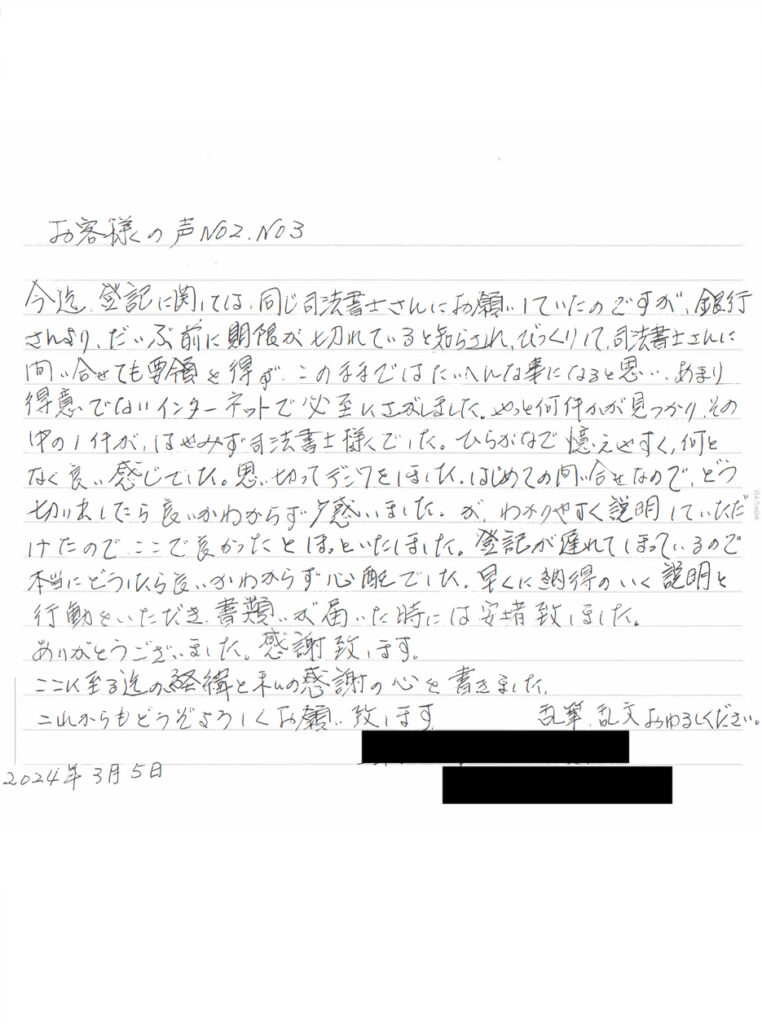 お客様の声NO2.NO3
今迄、登記に関しては、同じ司法書士さんにお願いしていたのですが、銀行
さんより、だいぶ前に期限が切れていると知らされ、びっくりして、司法書士さんに
問い合せても要領を得ず、このままではたいへんな事になると思い、あまり
得意でないインターネットで必至にさがしました。やっと何件かが見つかり、その
中の1件が、はやみず司法書士様でした。ひらがなで憶えやすく、何と
なく良い感じでした。思い切ってデンワをしました。はじめての問い合せなので、どう
切り出したら良いかわからず戸惑いました。が、わかりやすく説明していただ
けたので、ここで良かったとほっといたしました。登記が遅れてしまっているので
本当にどうしたら良いかわからず心配でした。早くに納得のいく説明と
行動をいただき、書類が届いた時には安堵致しました。
ありがとうございました。感謝致します。
ここに至る迄の経緯と私の感謝の心を書きました。
これからもどうぞよろしくお願い致します 乱筆、乱文おゆるしください。
2024年3月5日